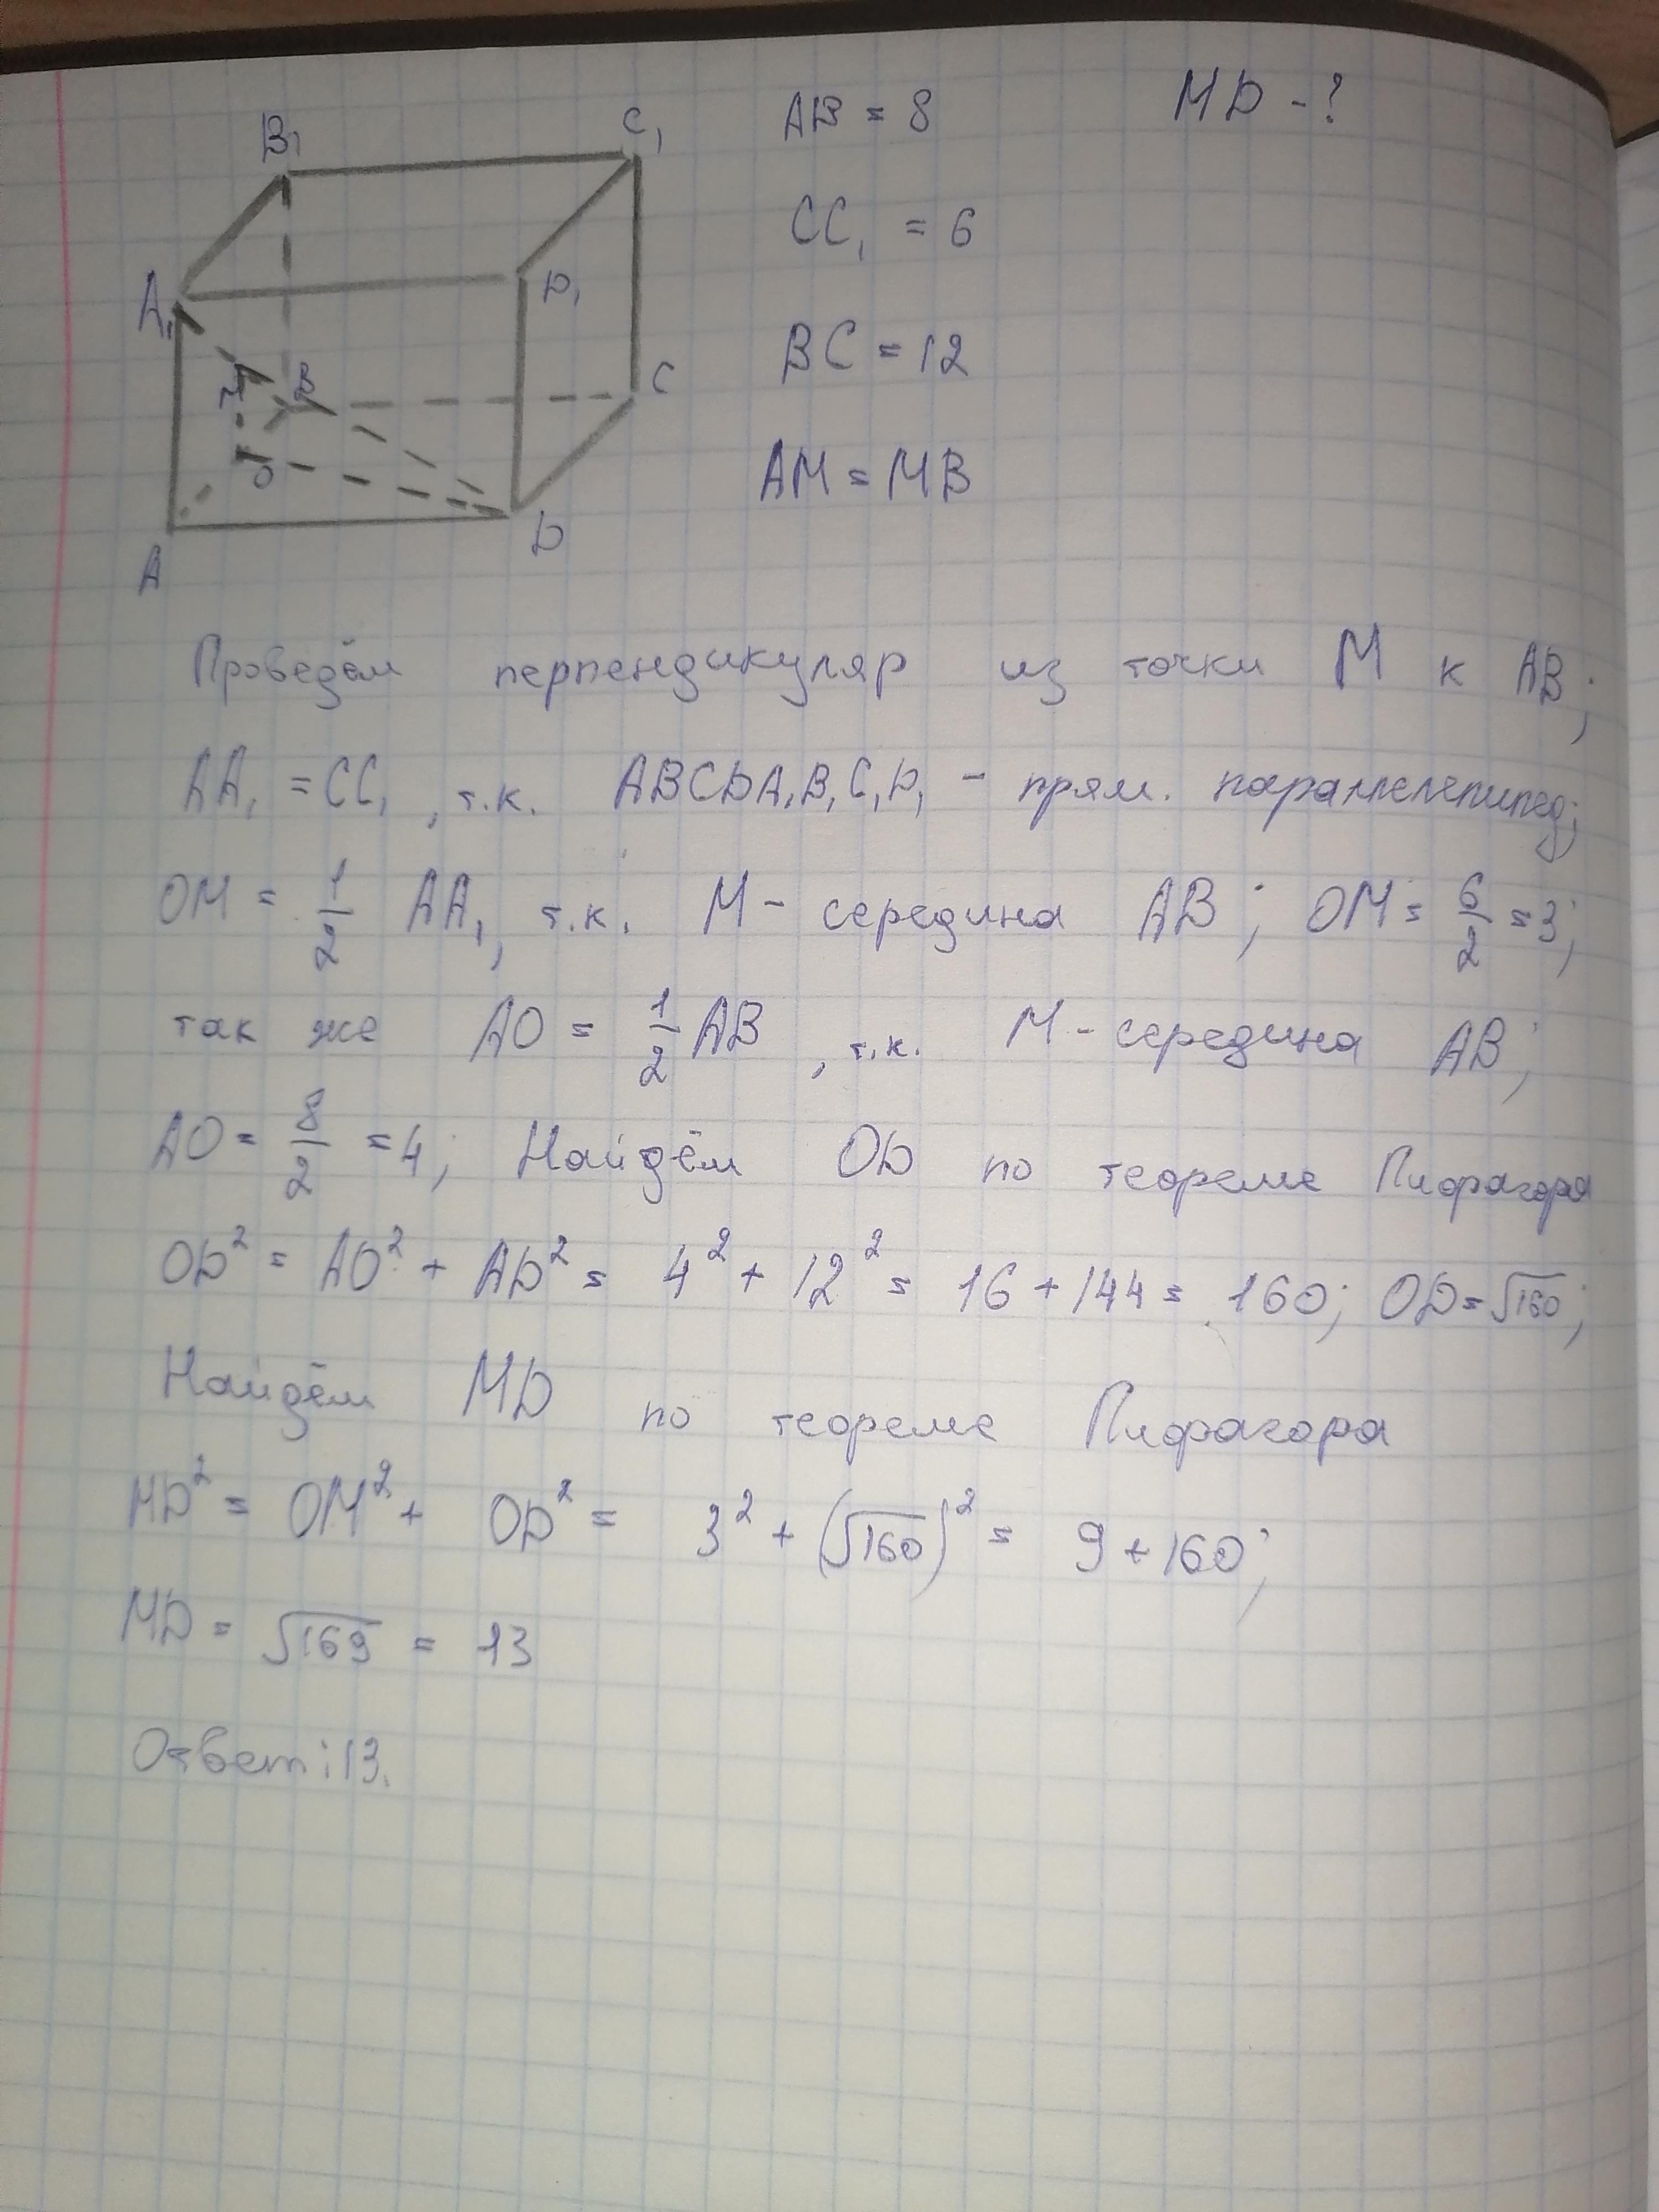 B₁
C₁
AB = 8
MD - ?
CC₁ = 6
A₁
D₁
BC = 12
M
B
C
AM = MB
O
A
D
Проведём перпендикуляр из точки M к AB;
AA₁ = CC₁, т.к. ABCDA₁B₁C₁D₁ - прям. параллелепипед;
OM = 1/2 AA₁, т.к. M - середина AB; OM = 6/2 = 3;
так же AO = 1/2 AB, т.к. M - середина AB;
AO = 8/2 = 4; Найдём OD по теореме Пифагора
OD² = AO² + AD² = 4² + 12² = 16 + 144 = 160; OD = √160;
Найдём MD по теореме Пифагора
MD² = OM² + OD² = 3² + (√160)² = 9 + 160;
MD = √169 = 13
Ответ: 13.